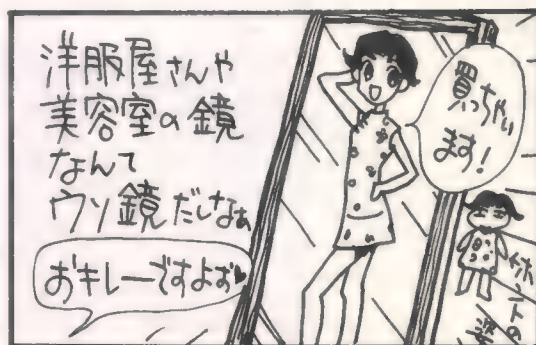 洋服屋さんや
美容室の鏡
なんて
ウソ鏡だしなぁ
おキレーですよぉ♥
買っちゃい
ます！
ホントの
姿